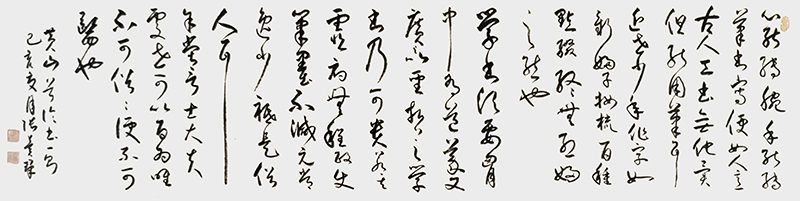 心能轉腕手能轉
筆書字便如人意
古人工書無他異
但能用筆耳
近世少年作字如
新婦子妝梳百種
點綴終無烈婦
之態也
學書須要胸
中有道義又
廣以聖哲之學
書乃可貴若其
靈府無程政使
筆墨不減元常
逸少祗是俗
人耳
余嘗言士大夫
處世可以百為唯
不可俗俗便不可
醫也
黃山谷論書一則
己亥夏月張